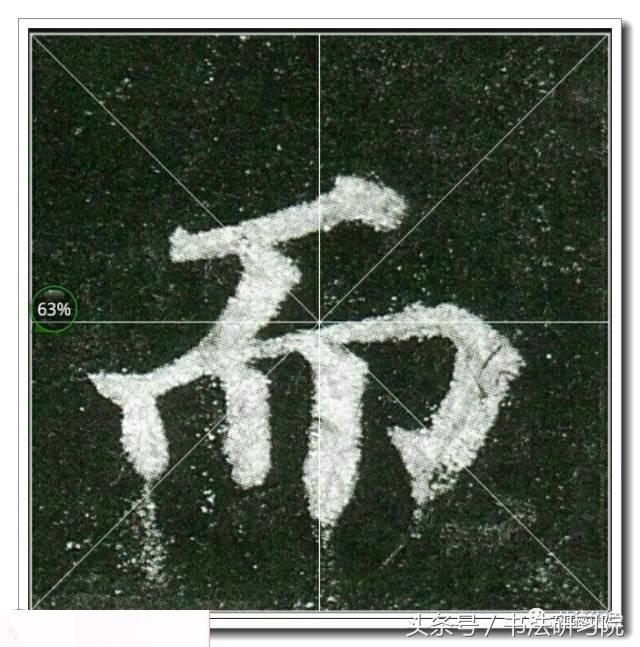 而
63%
头条号 / 书法研习院